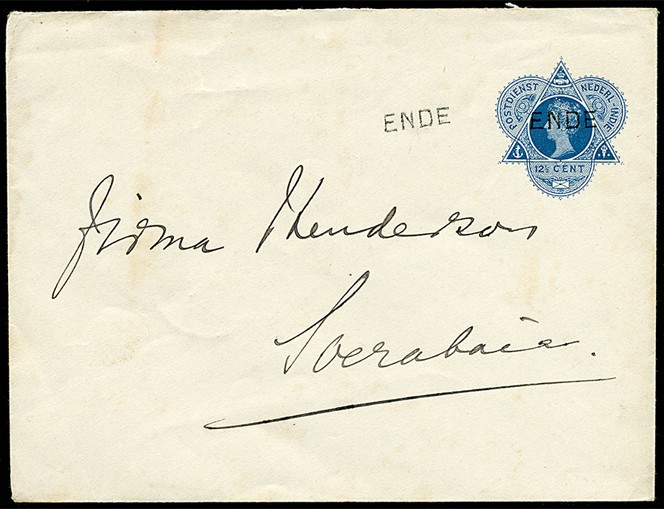 POSTDIENST NEDERL-INDIE
ENDE ENDE
12½ CENT
Firma Henderson
Soerabaia.